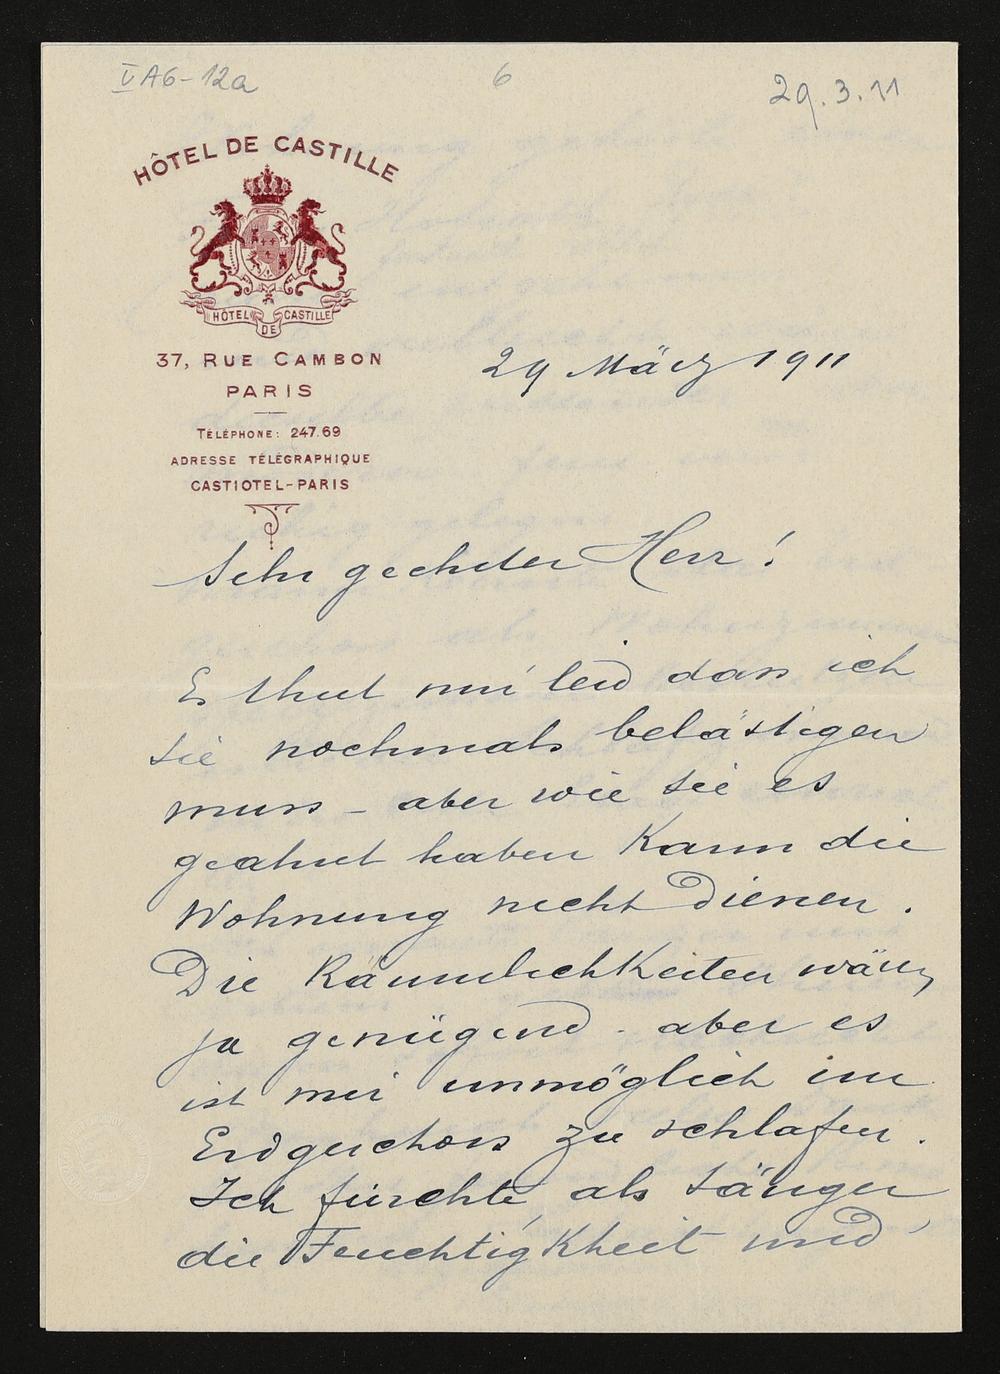 V A6-12a
6
29.3.11
HÔTEL DE CASTILLE
HÔTEL DE CASTILLE
37, RUE CAMBON
PARIS
TÉLÉPHONE: 247.69
ADRESSE TÉLÉGRAPHIQUE
CASTIOTEL-PARIS
29 März 1911
Sehr geehrter Herr!
Es thut mir leid dass ich
Sie nochmals belästigen
muss - aber wie Sie es
geahnt haben Kann die
Wohnung nicht Dienen.
Die RäumlichKeiten wären
ja genügend - aber es
ist mir unmöglich im
Erdgeschoss zu schlafen.
Ich fürchte, als Sänger,
die FeuchtigKheit und